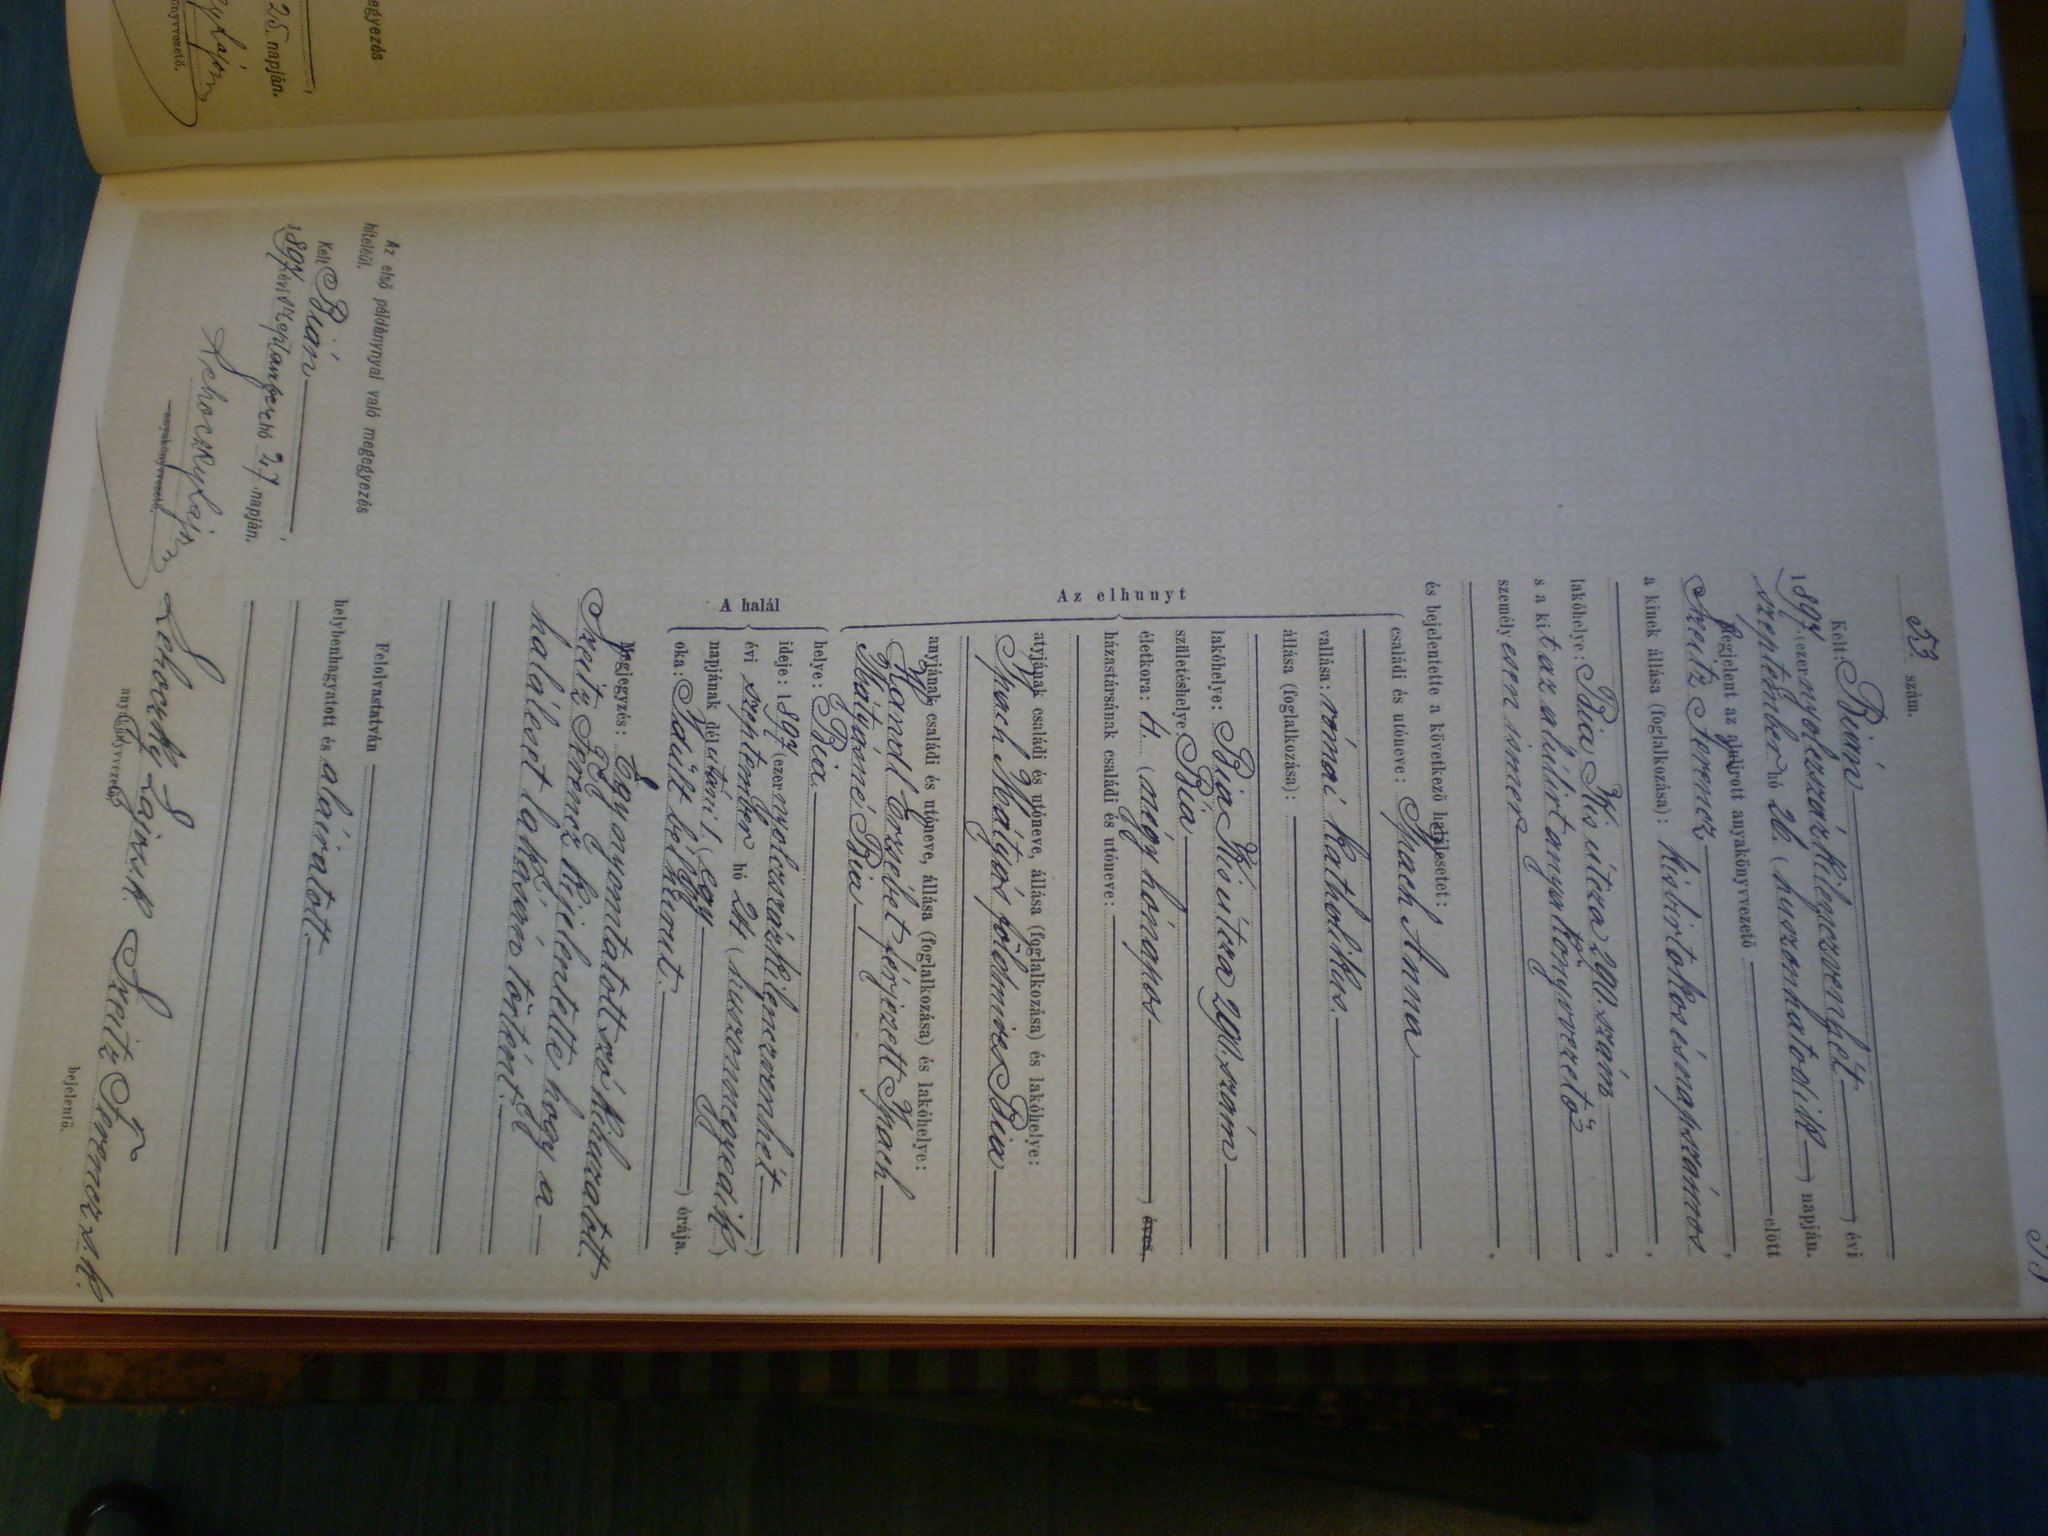 egyezés
25. napján.
53. szám.
Kelt: Bián
1897 (ezernyolczszázkilenczvenhét) évi
szeptember hó 26. (huszonhatodik) napján.
Megjelent az alulirott anyakönyvvezető előtt
Szeitz Ferencz,
a kinek állása (foglalkozása): kisbirtokos és napszámos,
lakóhelye: Bia Kis útcza 290. szám,
s a kit az alulírt anyakönyvvezető
személyesen ismer,
és bejelentette a következő halálesetet:
Az elhunyt
családi és utóneve: Spach Anna
vallása: római katholikus.
állása (foglalkozása):
lakóhelye: Bia Kis útcza 290. szám
születéshelye: Bia
életkora: 4. (négy hónapos) éves,
házastársának családi és utóneve:
atyjának családi és utóneve, állása (foglalkozása) és lakóhelye:
Spach Mátyás földmives Bia
anyjának családi és utóneve, állása (foglalkozása) és lakóhelye:
Erzsébet férjezett Spach
Mátyásné Bia,
A halál
helye: Bia.
ideje: 1897 (ezernyolczszázkilenczvenhét)
évi szeptember hó 24 (huszonnegyedik)
napjának délutáni 1. (egy) órája.
oka: bélhurut.
Megjegyzés: Egy nyomtatott szó kihuzatott.
Szeitz Ferencz kijelentette hogy a
haláleset lakásán történt.
Felolvastatván
helybenhagyatott és aláiratott.
Lehoczky Lajos s. k.
anyakönyvvezető
Szeitz Ferencz s. k.
bejelentő.
Az első példánynyal való megegyezés
hiteléül.
Kelt Bián,
1897 évi szeptember hó 27. napján.
Lehoczky Lajos
anyakönyvvezető.